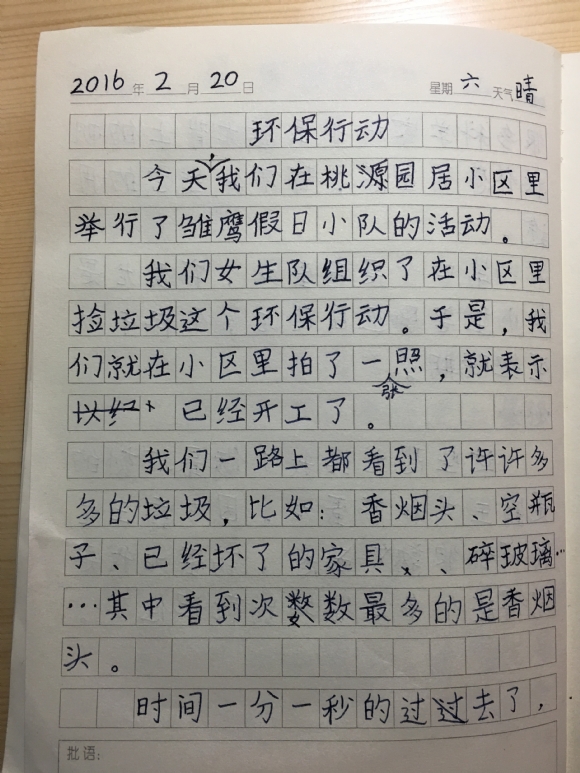 2016年2月20日 星期六 天气晴
环保行动
今天，我们在桃源园居小区里
举行了雏鹰假日小队的活动。
我们女生队组织了在小区里
捡垃圾这个环保行动。于是，我
们就在小区里拍了一张照，就表示
已经开工了。
我们一路上都看到了许许多
多的垃圾，比如：香烟头、空瓶
子、已经坏了的家具、、碎玻璃…
…其中看到次数最多的是香烟
头。
时间一分一秒的过去了，
批语：